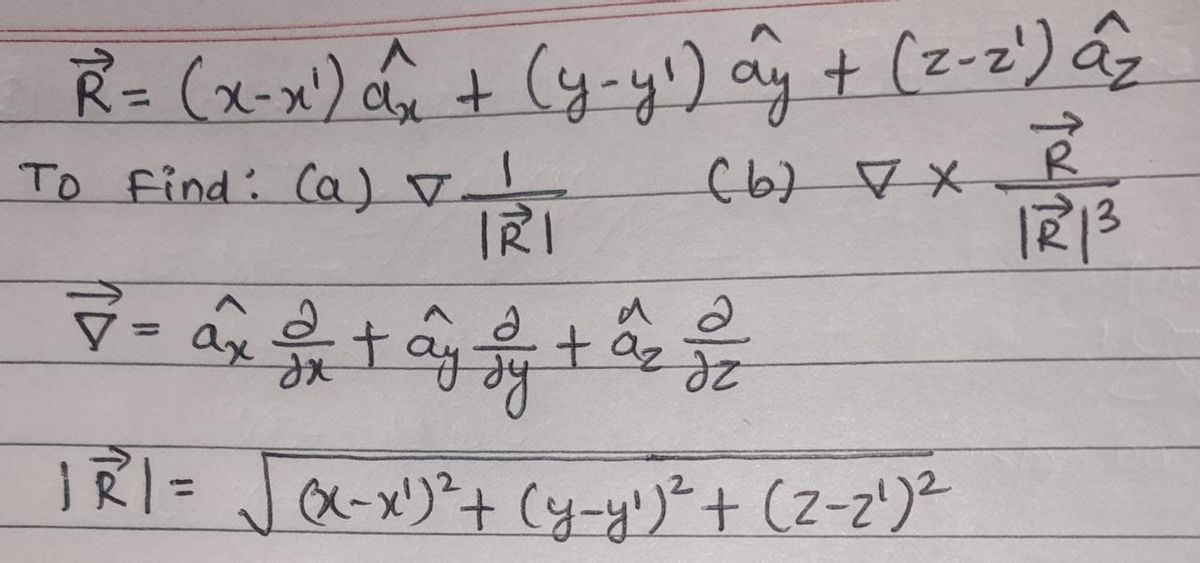 R⃗ = (x-x') âx + (y-y') ây + (z-z') âz
To Find: (a) ∇ 1/|R⃗| (b) ∇ × R⃗/|R⃗|³
∇⃗ = âx ∂/∂x + ây ∂/∂y + âz ∂/∂z
|R⃗| = √((x-x')² + (y-y')² + (z-z')²)